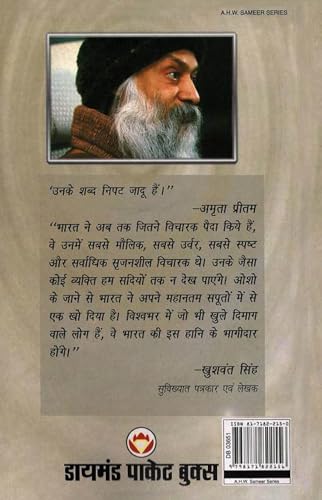 A.H.W. SAMEER SERIES
'उनके शब्द निपट जादू हैं।"
–अमृता प्रीतम
"भारत ने अब तक जितने विचारक पैदा किये हैं,
वे उनमें सबसे मौलिक, सबसे उर्वर, सबसे स्पष्ट
और सर्वाधिक सृजनशील विचारक थे। उनके जैसा
कोई व्यक्ति हम सदियों तक न देख पाएंगे। ओशो
के जाने से भारत ने अपने महानतम सपूतों में से
एक खो दिया है। विश्वभर में जो भी खुले दिमाग
वाले लोग हैं, वे भारत की इस हानि के भागीदार
होंगे।"
–खुशवंत सिंह
सुविख्यात पत्रकार एवं लेखक
डायमंड पाकेट बुक्स
DB 03651
A.H.W. Sameer Series